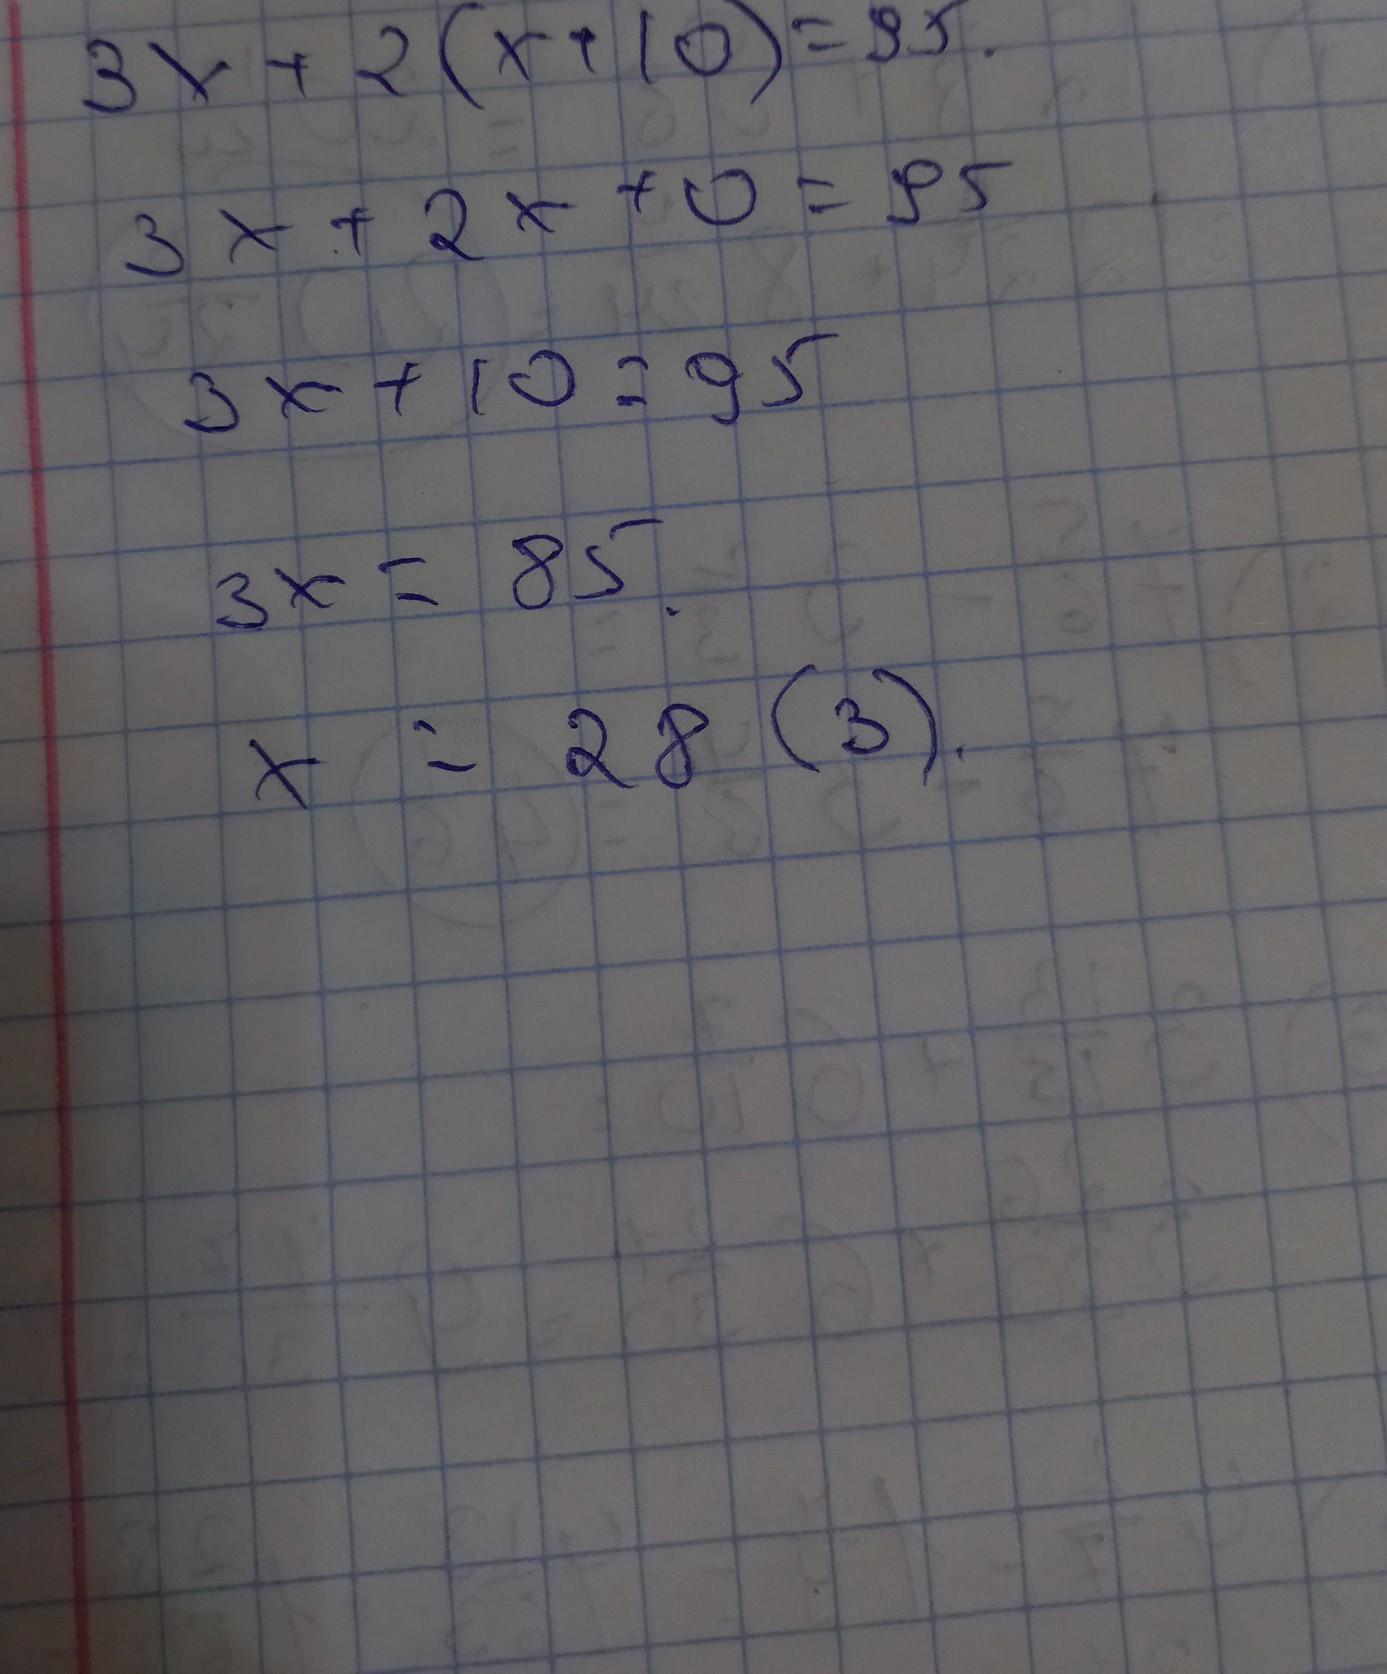 3x + 2(x+10) = 95.
3x + 2x +0 = 95
3x + 10 = 95
3x = 85.
x = 28 (3).